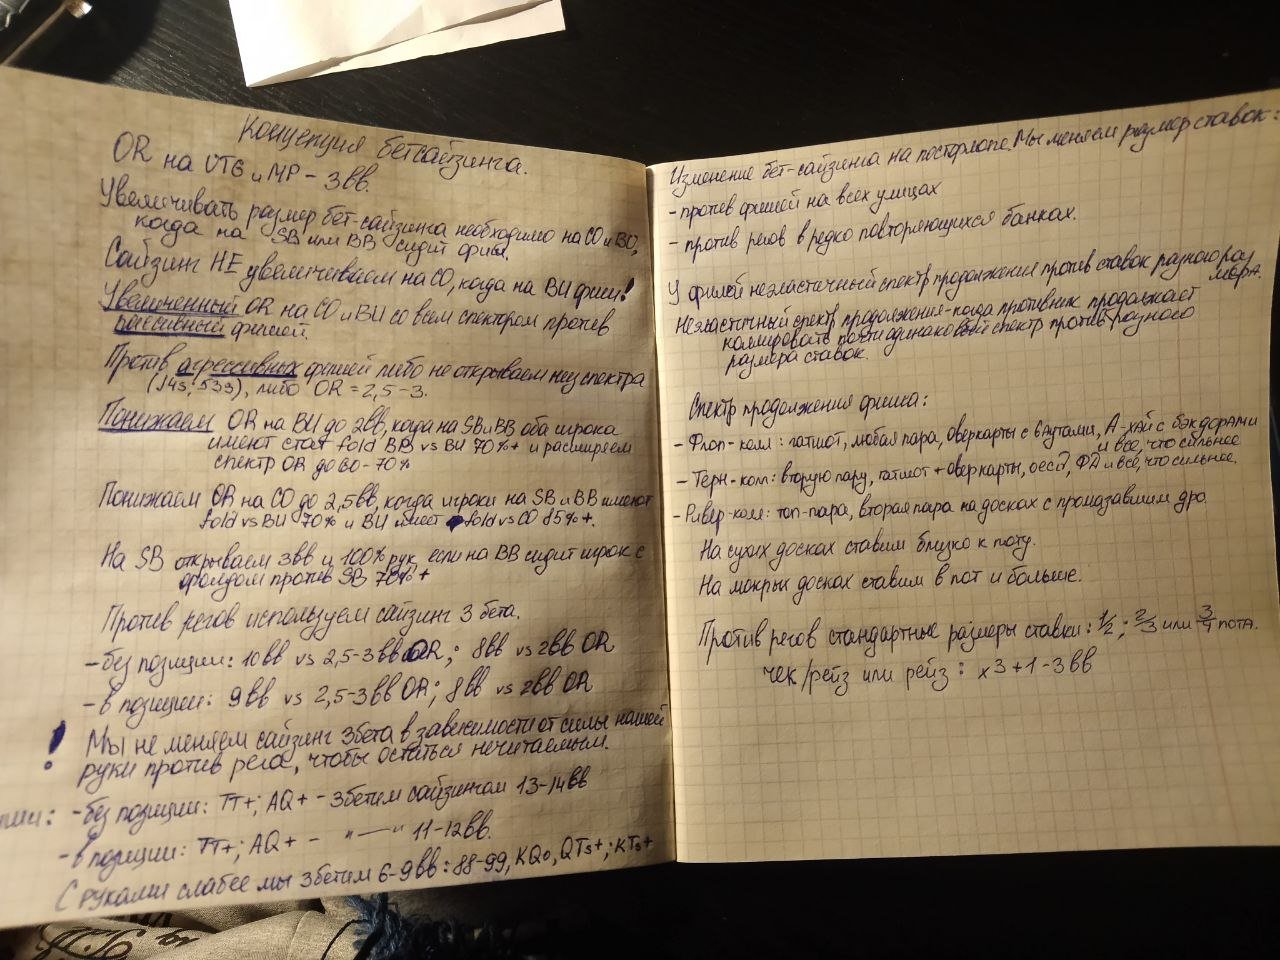 Концепция бетсайзинга.
OR на UTG и MP - 3вв.
Увеличивать размер бет-сайзинга необходимо на CO и BU,
когда на SB или BB сидит фиш.
Сайзинг НЕ увеличиваем на CO, когда на BU фиш!
Увеличенный OR на CO и BU со всем спектром против
пассивный фишей.
Против агрессивных фишей либо не открываем низ спектра
(J4s, 53s), либо OR = 2,5-3.
Понижаем OR на BU до 2вв, когда на SB и BB оба игрока
имеют стат fold BB vs BU 70%+ и расширяем
спектр OR до 60-70%
Понижаем OR на CO до 2,5вв, когда игроки на SB и BB имеют
fold vs BU 70% и BU имеет fold vs CO 85%+.
На SB открываем 3вв и 100% рук, если на BB сидит игрок с
фолдом против SB 70%+
Против регов используем сайзинг 3 бета.
- без позиции: 10вв vs 2,5-3вв OR; 8вв vs 2вв OR
- в позиции: 9вв vs 2,5-3вв OR; 8вв vs 2вв OR
! Мы не меняем сайзинг 3бета в зависимости от силы нашей
руки против рега, чтобы остаться нечитаемым.
- без позиции: TT+; AQ+ - 3бетим сайзингом 13-14вв
- в позиции: TT+; AQ+ - "—" 11-12вв.
С руками слабее мы 3бетим 6-9вв: 88-99, KQo, QTs+; KTs+
Изменение бет-сайзинга на постфлопе. Мы меняем размер ставок:
- против фишей на всех улицах
- против регов в редко повторяющихся банках.
У фишей неэластичный спектр продолжения против ставок разного раз
мера.
Неэластичный спектр продолжения - когда противник продолжает
коллировать почти одинаковый спектр против разного
размера ставок.
Спектр продолжения фиша:
- Флоп-колл: гатшот, любая пара, оверкарты с бэкдорами
и все, что сильнее
- Терн-колл: вторую пару, гатшот + оверкарты, оесд, ФД и все, что сильнее.
- Ривер-колл: топ-пара, вторая пара на досках с промазавшим дро
На сухих досках ставим близко к поту.
На мокрых досках ставим в пот и больше.
Против регов стандартные размеры ставки: 1/2; 2/3 или 3/4 пота.
чек/рейз или рейз: x3+1-3вв